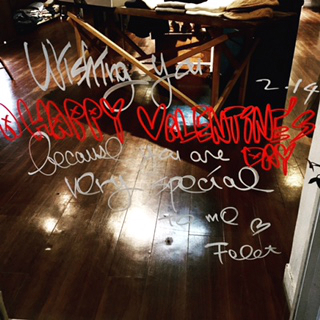 Wishing you
2.14
A HAPPY VALENTINE'S
DAY
because you are
very special
to me ♡